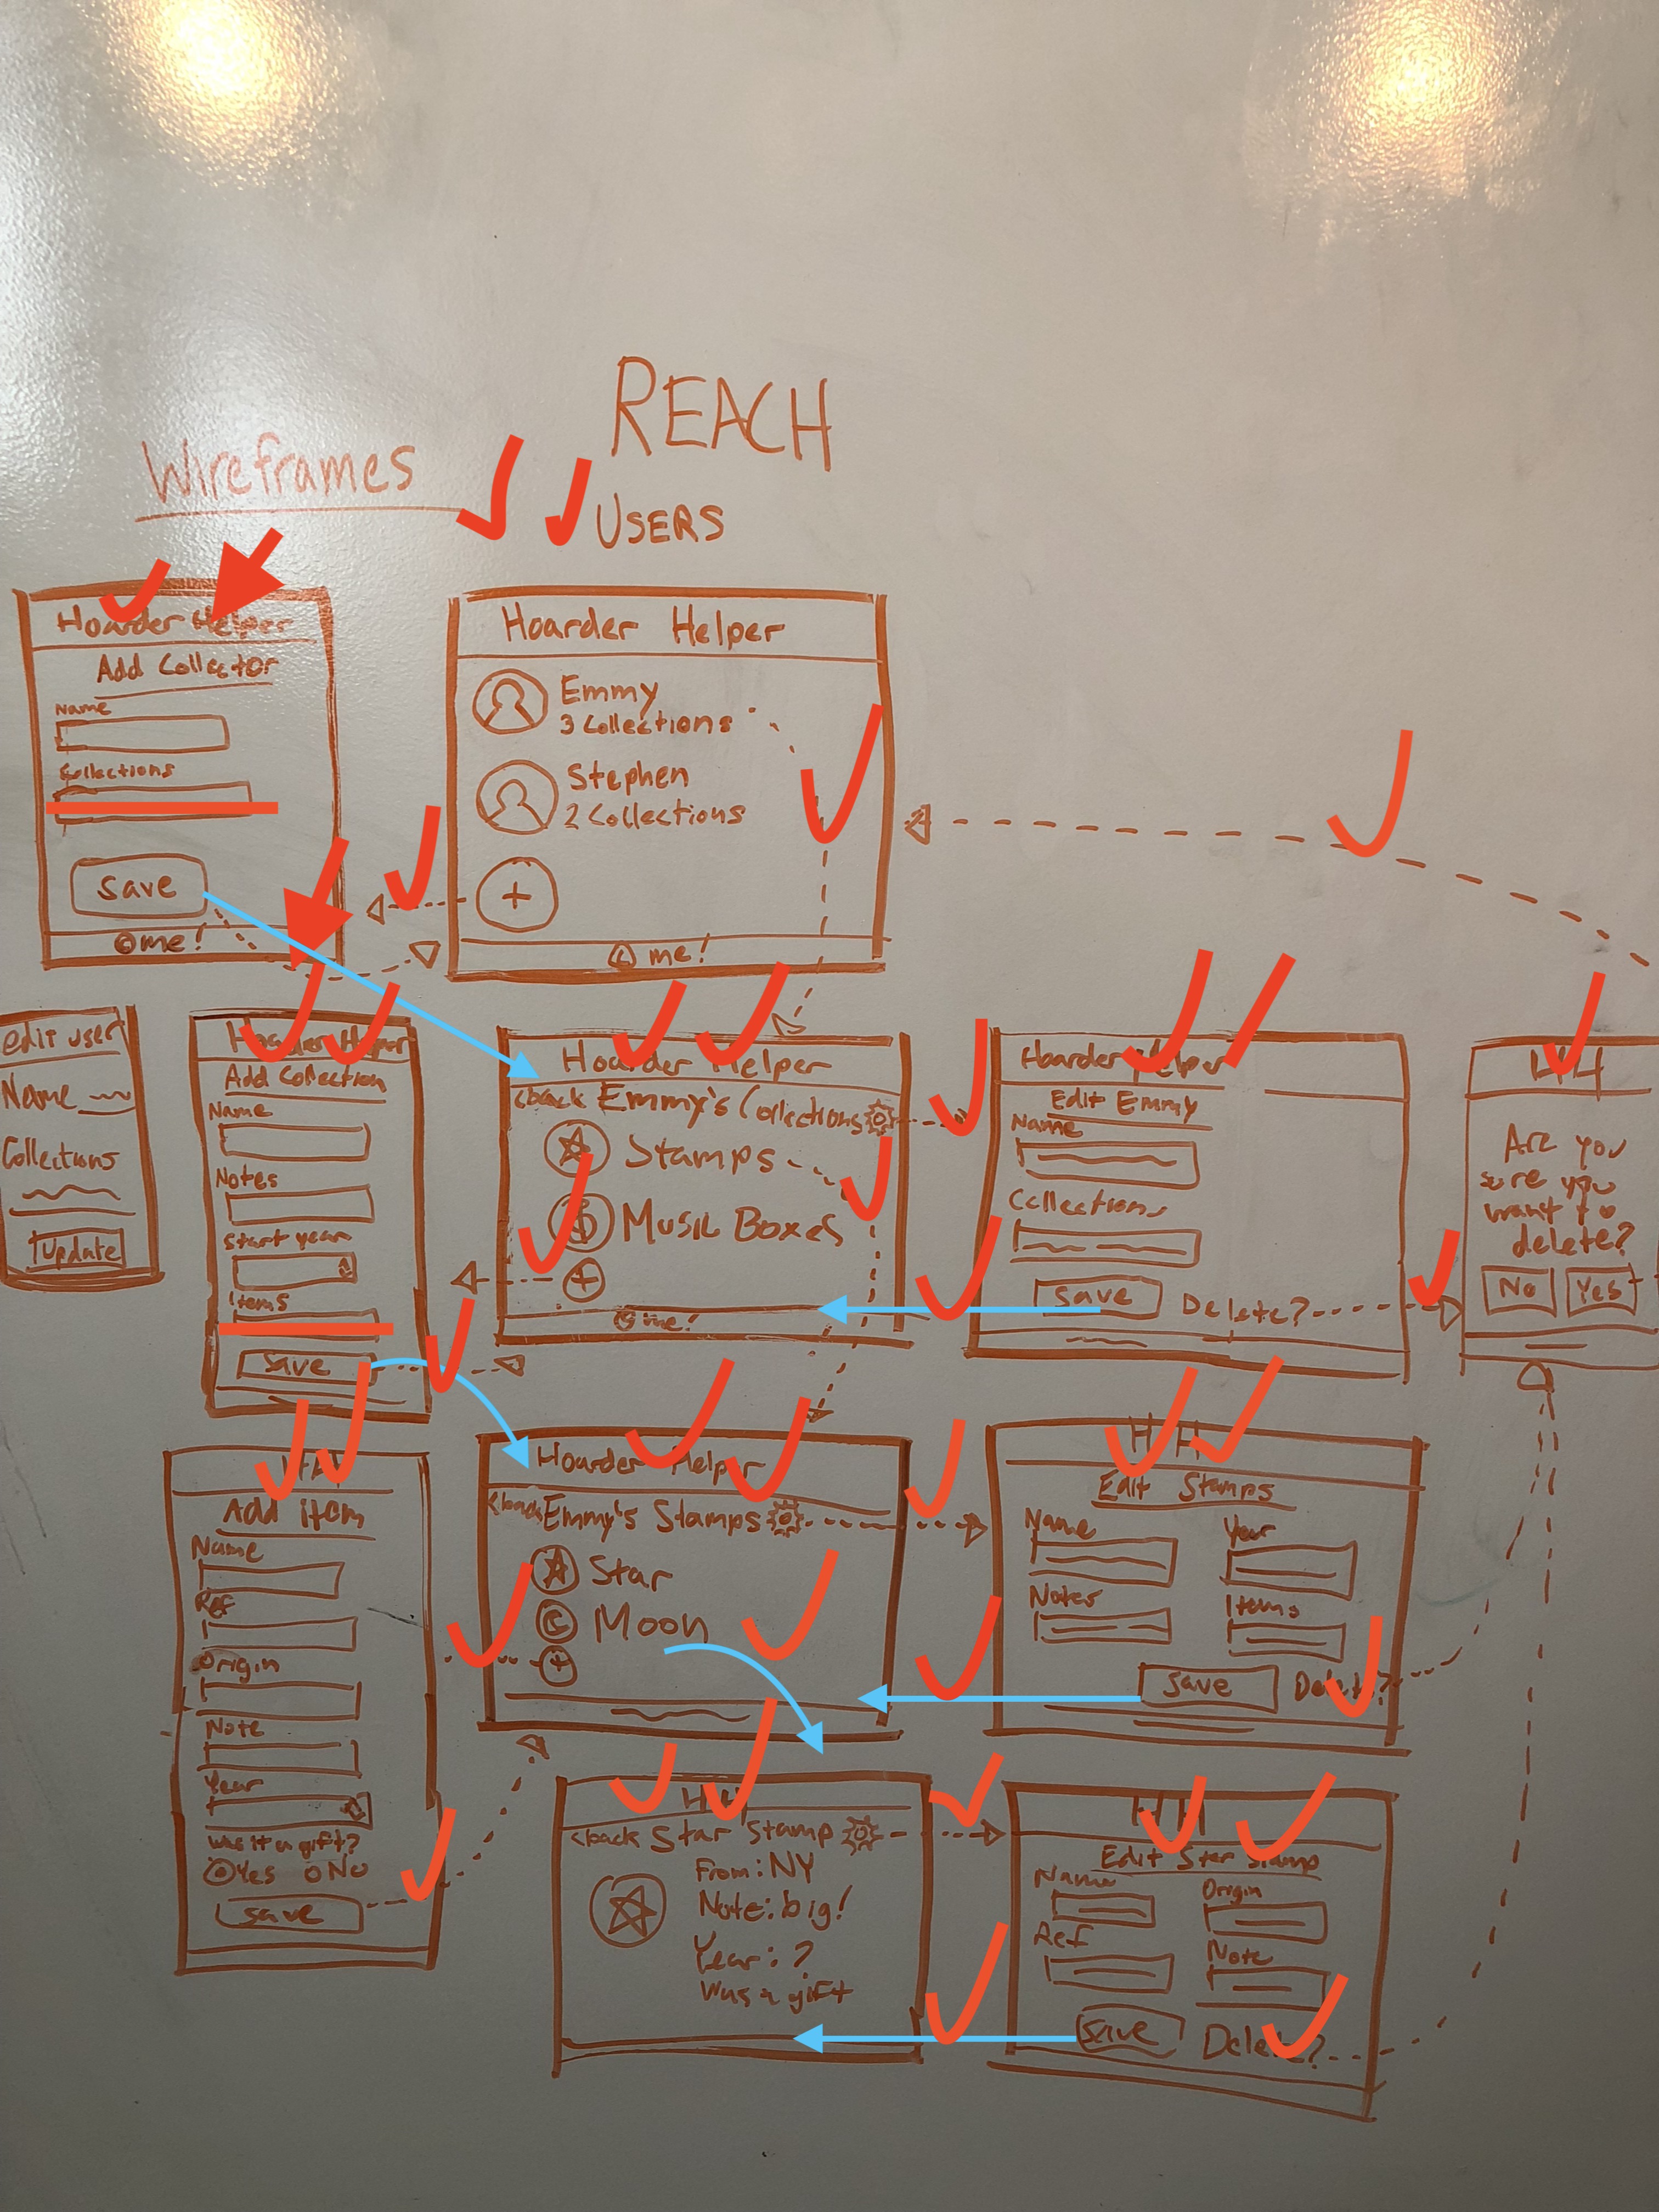 REACH
Wireframes
USERS
Hoarder Helper
Add Collector
Name
Collections
Save
© me!
Hoarder Helper
Emmy
3 Collections
Stephen
2 Collections
+
© me!
edit user
Name
Collections
Update
Hoarder Helper
Add Collection
Name
Notes
Start year
Items
Save
Hoarder Helper
<back Emmy's Collections
Stamps
$ Music Boxes
+
© me!
Hoarder Helper
Edit Emmy
Name
Collections
Save Delete?
HH
Are you
sure you
want to
delete?
No Yes
HH
Add item
Name
Ref
Origin
Note
Year
Was it a gift?
Yes No
Save
Hoarder Helper
<back Emmy's Stamps
Star
Moon
+
HH
Edit Stamps
Name Year
Notes Items
Save Delete?
HH
<back Star Stamp
From: NY
Note: big!
Year: ?
Was a gift
HH
Edit Star Stamp
Name Origin
Ref Note
Save Delete?